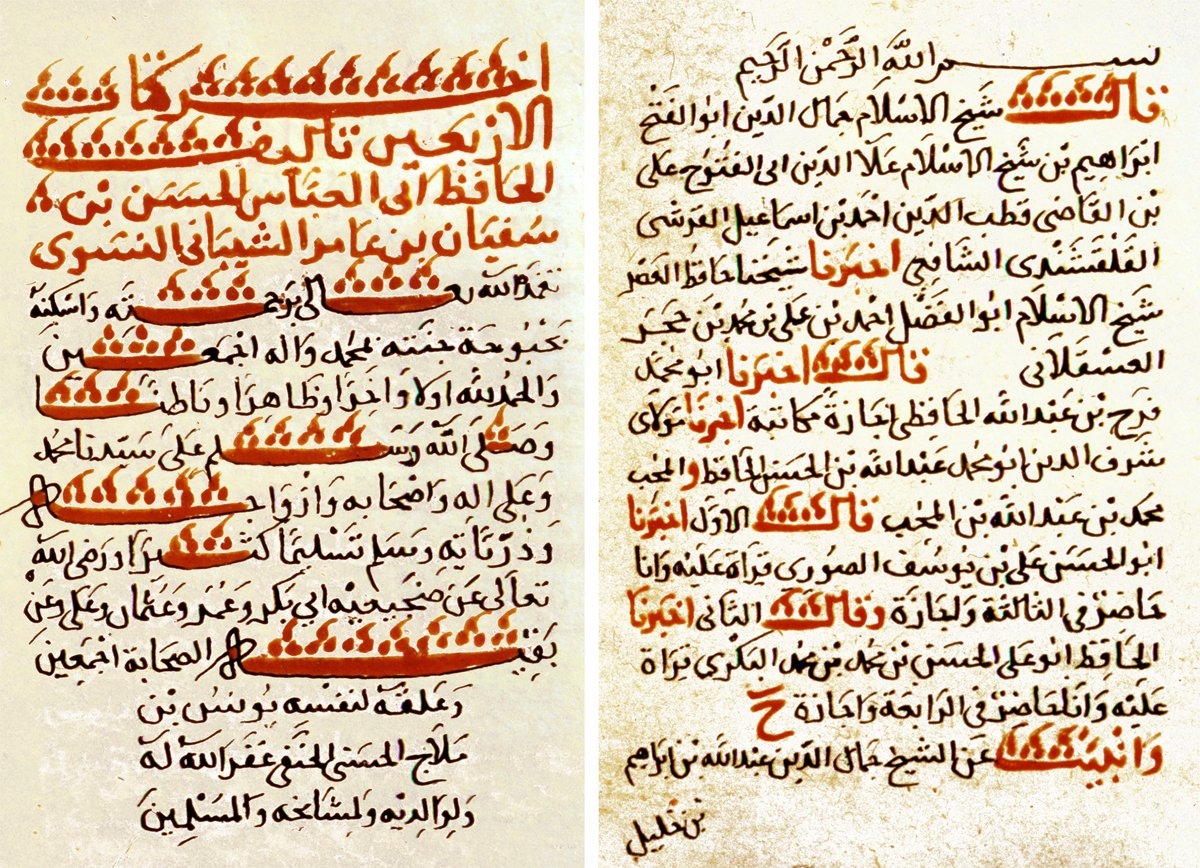 بسم الله الرحمن الرحيم
قال شيخ الاسلام جمال الدين ابو الفتح
ابراهيم بن شيخ الاسلام علا الدين ابى الفتوح على
بن القاضى قطب الدين احمد بن اسماعيل القرشى
القلقشندى الشافعى اخبرنا شيخنا حافظ العصر
شيخ الاسلام ابو الفضل احمد بن على بن محمد بن حجر
العسقلانى قال اخبرنا ابو محمد
فرج بن عبد الله الحافظى اجازة مكاتبة اخبرنا مولاى
شرف الدين ابو محمد عبد الله بن الحسن الحافظ والمحب
محمد بن عبد الله بن المحب قال الاول اخبرنا
ابو الحسن على بن يوسف الصورى قراة عليه وانا
حاضر فى الثالثة واجازة وقال الثانى اخبرنا
الحافظ ابو على الحسن بن محمد بن محمد البكرى قراة
عليه وانا حاضر فى الرابعة واجازة ح
وانبئت عن الشيخ جمال الدين عبد الله بن ابراهيم
بن خليل
اخر كتاب
الاربعين تاليف
الحافظ ابى العباس الحسن بن
سفيان بن عامر الشيبانى النسوى
تغمد الله تعالى برحمته واسكنه
بحبوحة جنته بمحمد واله اجمعين
والحمد لله اولا واخرا وظاهرا وباطنا
وصلى الله وسلم على سيدنا محمد
وعلى اله واصحابه وازواجه
وذرياته وسلم تسليما كثيرا ورضى الله
تعالى عن ضجيعيه ابى بكر وعمر وعثمان وعلى وعن
بقية الصحابة اجمعين
وعلقه لنفسه يونس بن
ملاج الحسنى الحنفى غفر الله له
ولوالديه ولمشايخه والمسلمين